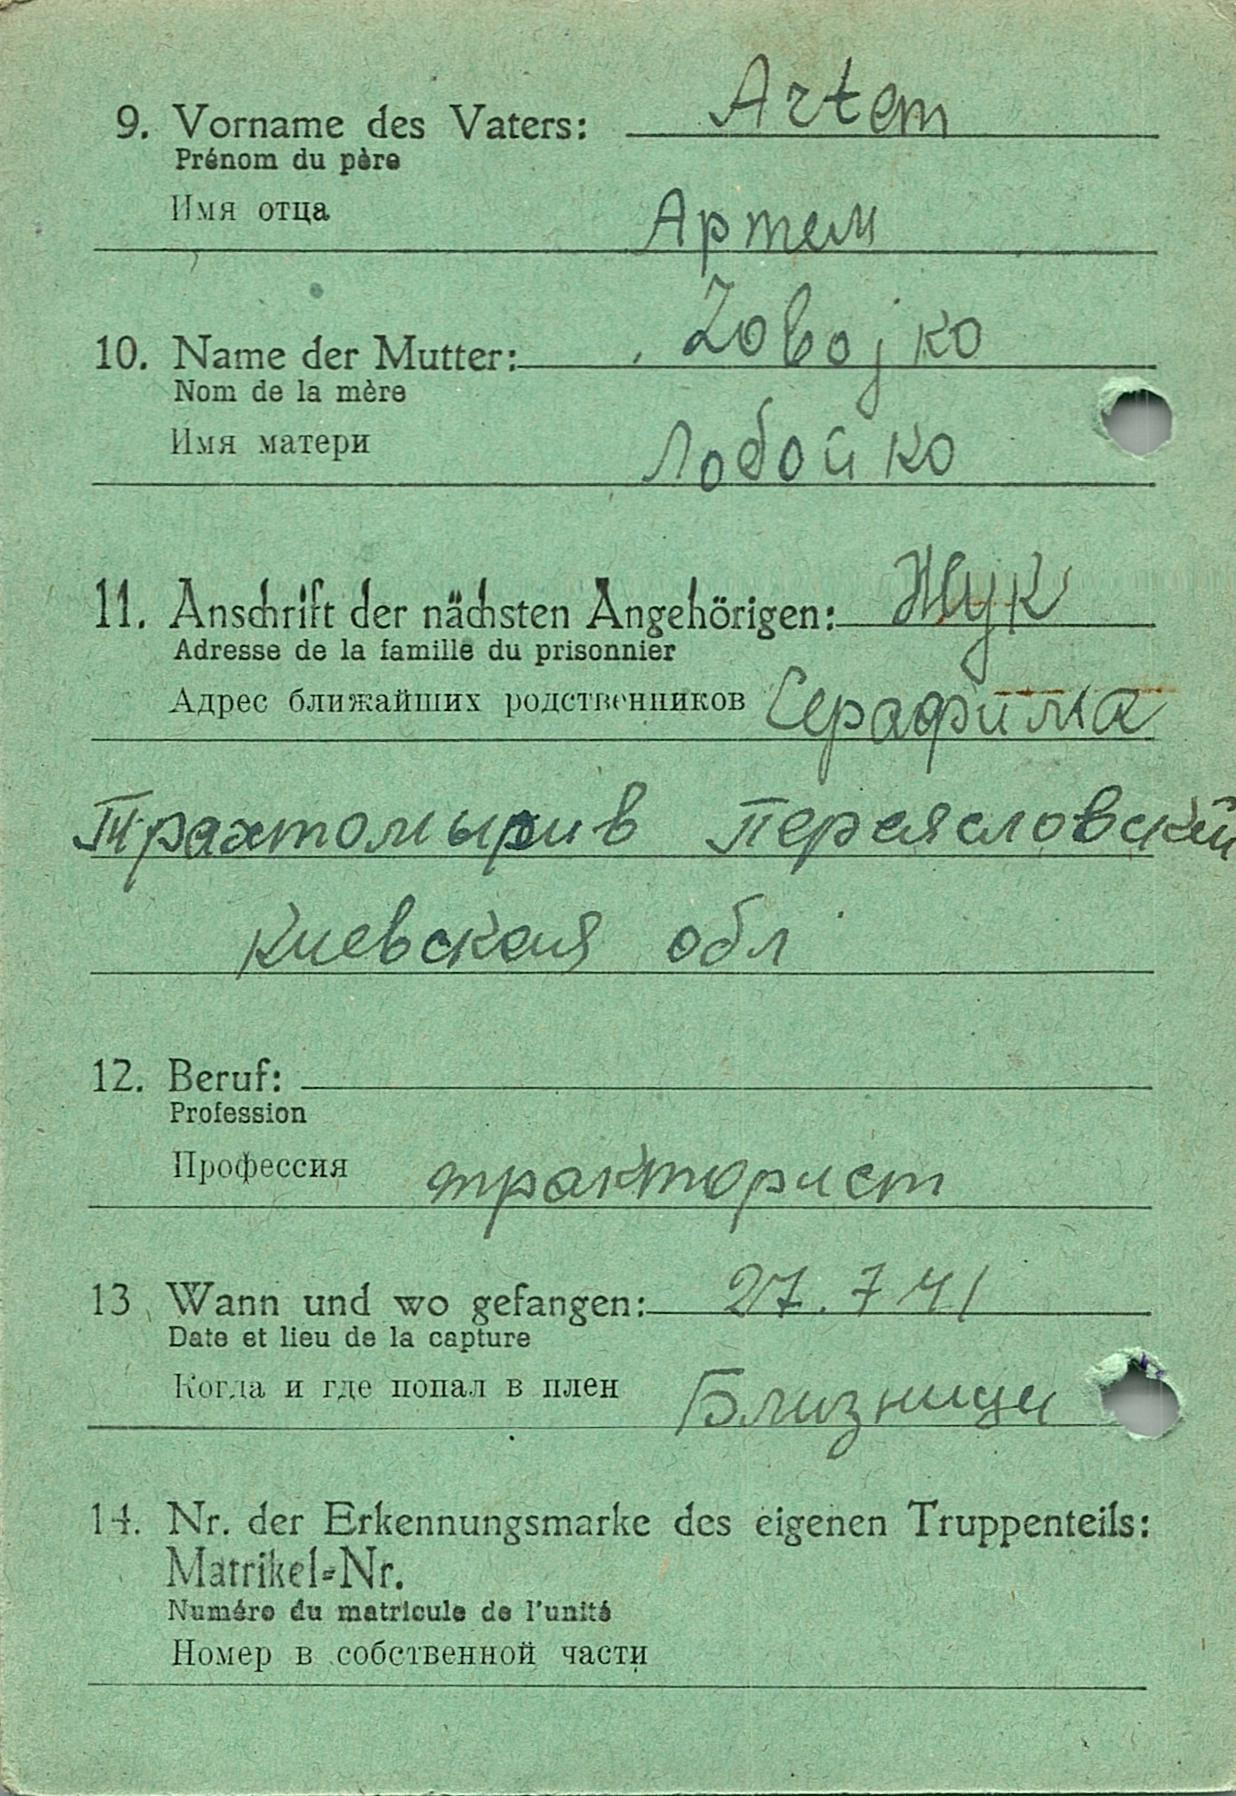 9. Vorname des Vaters: Artem
Prénom du père
Имя отца
Артем
10. Name der Mutter: Lobojko
Nom de la mère
Имя матери
Лобойко
11. Anschrift der nächsten Angehörigen: Жук
Adresse de la famille du prisonnier
Адрес ближайших родственников Серафима
Трахтомырив Переясловский
Киевская обл
12. Beruf:
Profession
Профессия тракторист
13 Wann und wo gefangen: 27.7 41
Date et lieu de la capture
Когда и где попал в плен Близници
14. Nr. der Erkennungsmarke des eigenen Truppenteils:
Matrikel-Nr.
Numéro du matricule de l'unité
Номер в собственной части